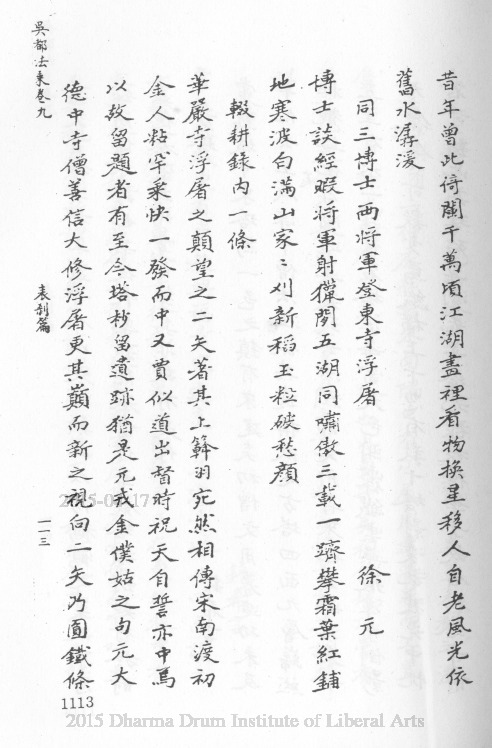 昔年曾此倚闌干萬頃江湖畫裡看物換星移人自老風光依
舊水潺湲
同三博士兩將軍登東寺浮屠　徐元
博士談經暇將軍射獵閒五湖同嘯傲三載一躋攀霜葉紅鋪
地寒波白滿山家〻刈新稻玉粒破愁顏
輟耕錄內一條
華嚴寺浮屠之顛望之二矢著其上簳羽宛然相傳宋南渡初
金人粘罕乘快一發而中又賈似道出督時祝天自誓亦中焉
以故留題者有至今塔杪留遺跡猶是元戎金僕姑之句元大
德中寺僧善信大修浮屠更其巔而新之視向二矢乃圓鐵條
吳都法乘卷九
表剎篇
一一三
1113
2015 Dharma Drum Institute of Liberal Arts